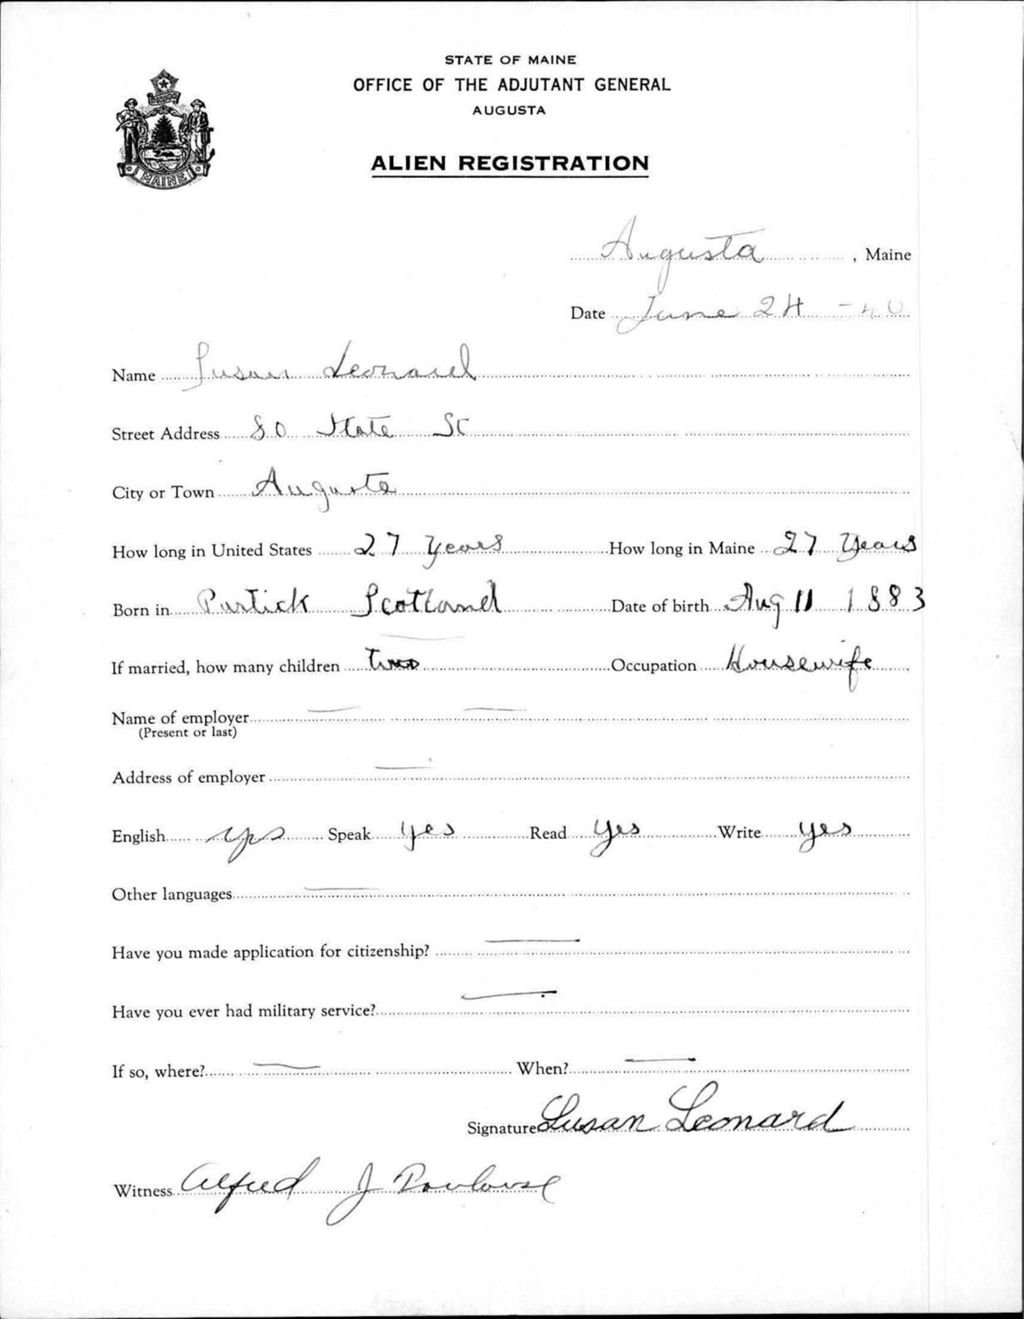 STATE OF MAINE
OFFICE OF THE ADJUTANT GENERAL
AUGUSTA
ALIEN REGISTRATION
MAINE
Augusta, Maine
Date June 24 - 40
Name Susan Leonard
Street Address 80 State St
City or Town Augusta
How long in United States 27 Years How long in Maine 27 Years
Born in Partick Scotland Date of birth Aug 11 1883
If married, how many children two Occupation Housewife
Name of employer
(Present or last)
Address of employer
English yes Speak yes Read yes Write yes
Other languages
Have you made application for citizenship?
Have you ever had military service?
If so, where? When?
Signature Susan Leonard
Witness Alfred J